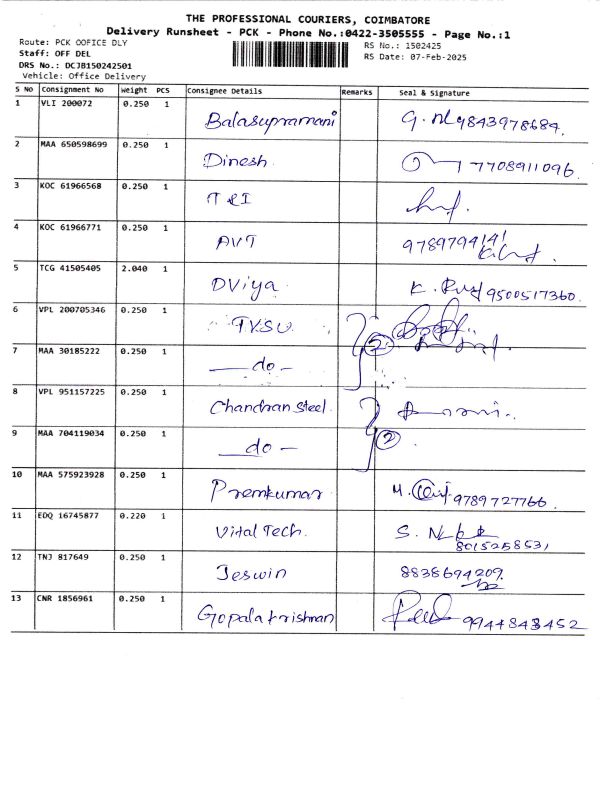 THE PROFESSIONAL COURIERS, COIMBATORE
Delivery Runsheet - PCK - Phone No.:0422-3505555 - Page No.:1
Route: PCK OOFICE DLY
RS No.: 1502425
Staff: OFF DEL
RS Date: 07-Feb-2025
DRS No.: DCJB150242501
Vehicle: Office Delivery
S No Consignment No Weight PCS Consignee Details Remarks Seal & Signature
1 VLI 200072 0.250 1 Balasupramani 9843978684.
2 MAA 650598699 0.250 1 Dinesh 7708911096.
3 KOC 61966568 0.250 1 TRI
4 KOC 61966771 0.250 1 AVT 9789794141
5 TCG 41505405 2.040 1 DViya K. 9500517360.
6 VPL 200705346 0.250 1 TVSU
7 MAA 30185222 0.250 1 — do — 2
8 VPL 951157225 0.250 1 Chandran Steel.
9 MAA 704119034 0.250 1 — do — 2
10 MAA 575923928 0.250 1 Premkumar M. 9789727766.
11 EDQ 16745877 0.220 1 Vital Tech. S. 8015258531
12 TNJ 817649 0.250 1 Jeswin 8838694209.
13 CNR 1856961 0.250 1 Gopala Krishnan 9944843452